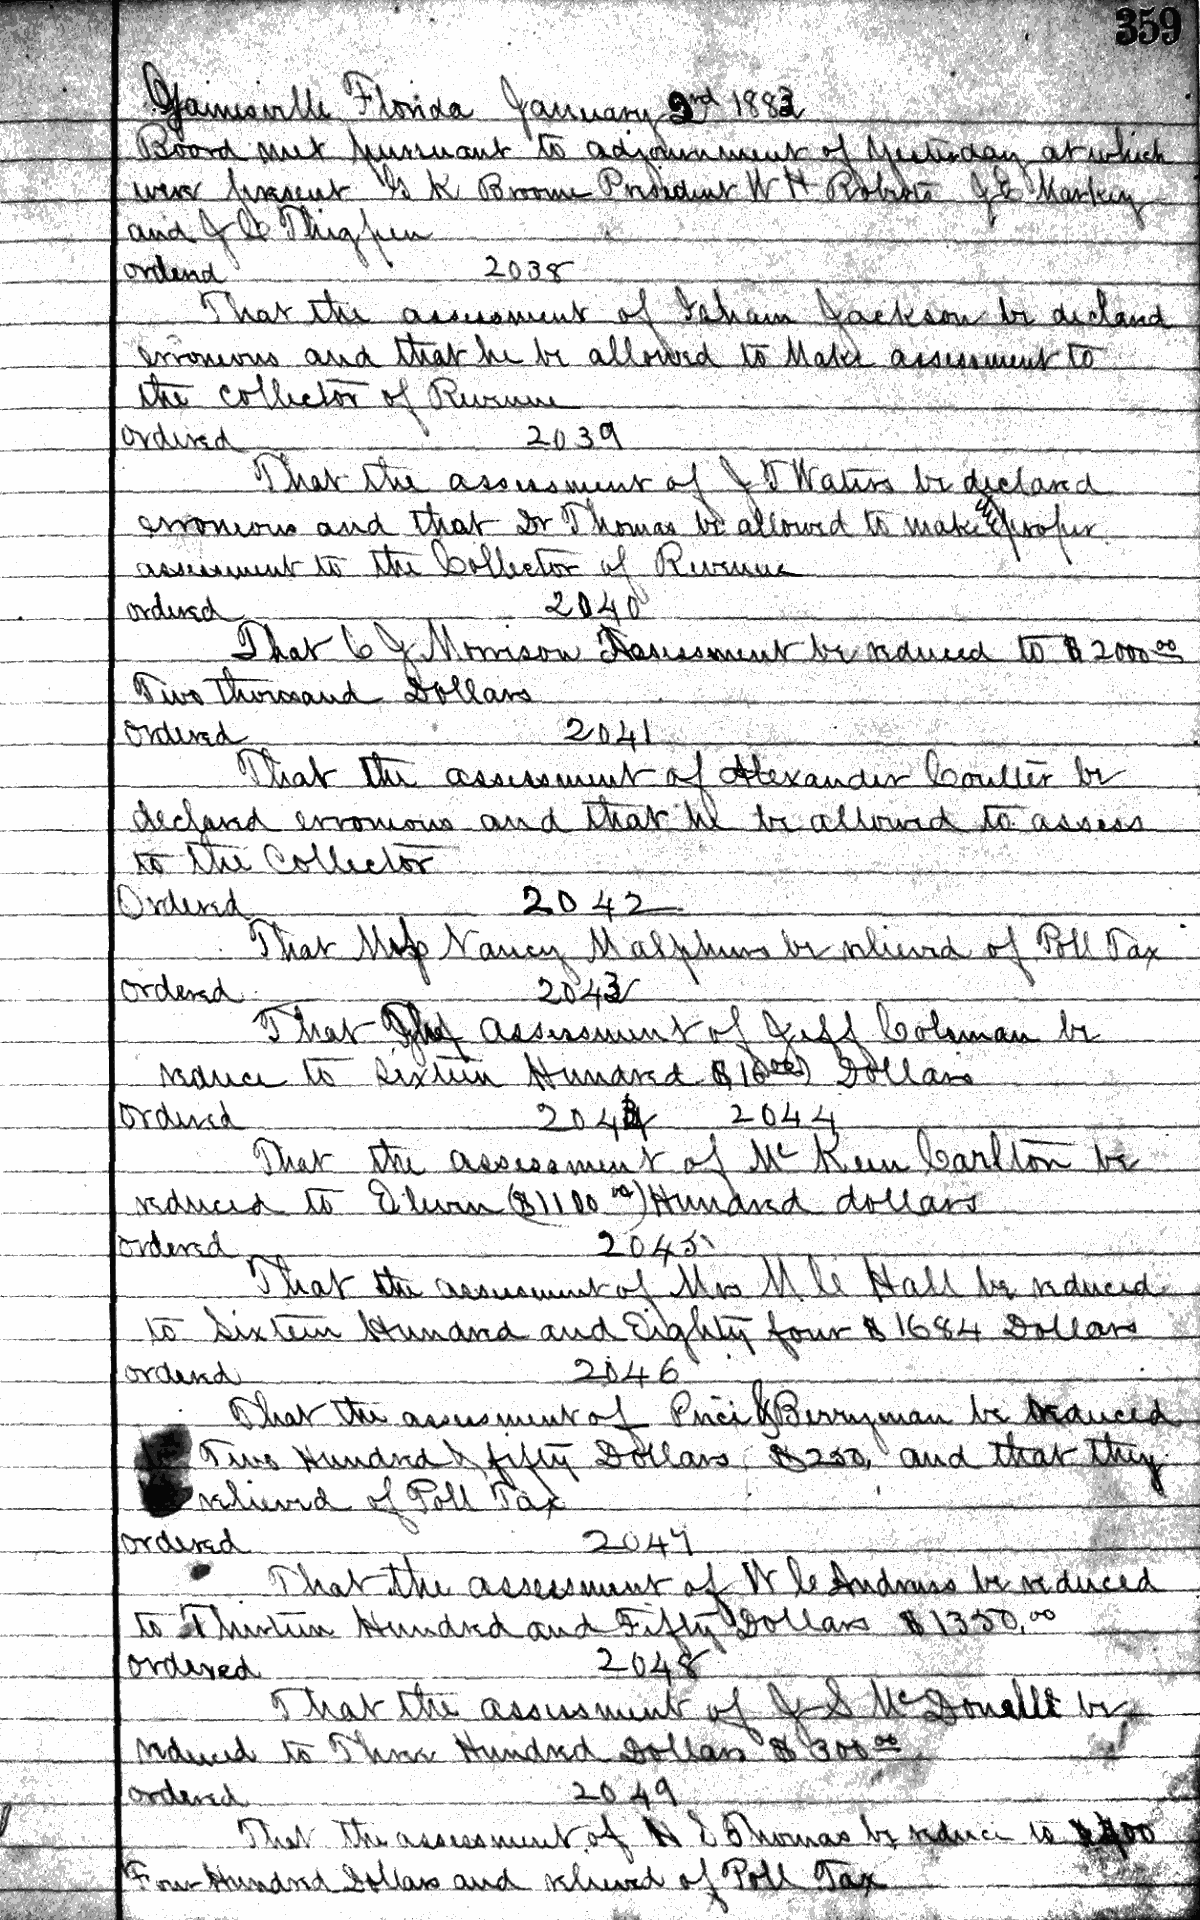 359
Gainesville Florida January 2nd 1883
Board met pursuant to adjournment of Yesterday at which
were present G K Broome President W H Roberts J E Markey
and J C Thigpen
ordered 2038
That the assessment of Isham Jackson be declared
erroneous and that he be allowed to Make assessment to
the Collector of Revenue
ordered 2039
That the assessment of J T Waters be declared
erroneous and that Dr Thomas be allowed to make the proper
assessment to the Collector of Revenue
ordered 2040
That C J Morrison Assessment be reduced to $2000 00
Two thousand Dollars
ordered 2041
That the assessment of Alexander Coulter be
declared erroneous and that he be allowed to assess
to the Collector
Ordered 2042
That Nancy Malphurs be relieved of Poll Tax
ordered 2043
That The assessment of Jeff Coleman be
reduce to Sixteen Hundred $1600 Dollars
ordered 2044 2044
That the assessment of McKeen Carlton be
reduced to Eleven ($1100 00) Hundred dollars
ordered 2045
That the assessment of Mrs M C Hall be reduced
to Sixteen Hundred and Eighty four $1684 Dollars
ordered 2046
That the assessment of Price & Berryman be reduced
Two Hundred & fifty Dollars $250, and that they
relieved of Poll Tax
ordered 2047
That the assessment of W C Andruss be reduced
to Thirteen Hundred and Fifty Dollars $1350.00
ordered 2048
That the assessment of J S McDonell be
reduced to Three Hundred Dollars $300 00
ordered 2049
That the assessment of E Thomas be reduce to $400
Four Hundred Dollars and relieved of Poll Tax